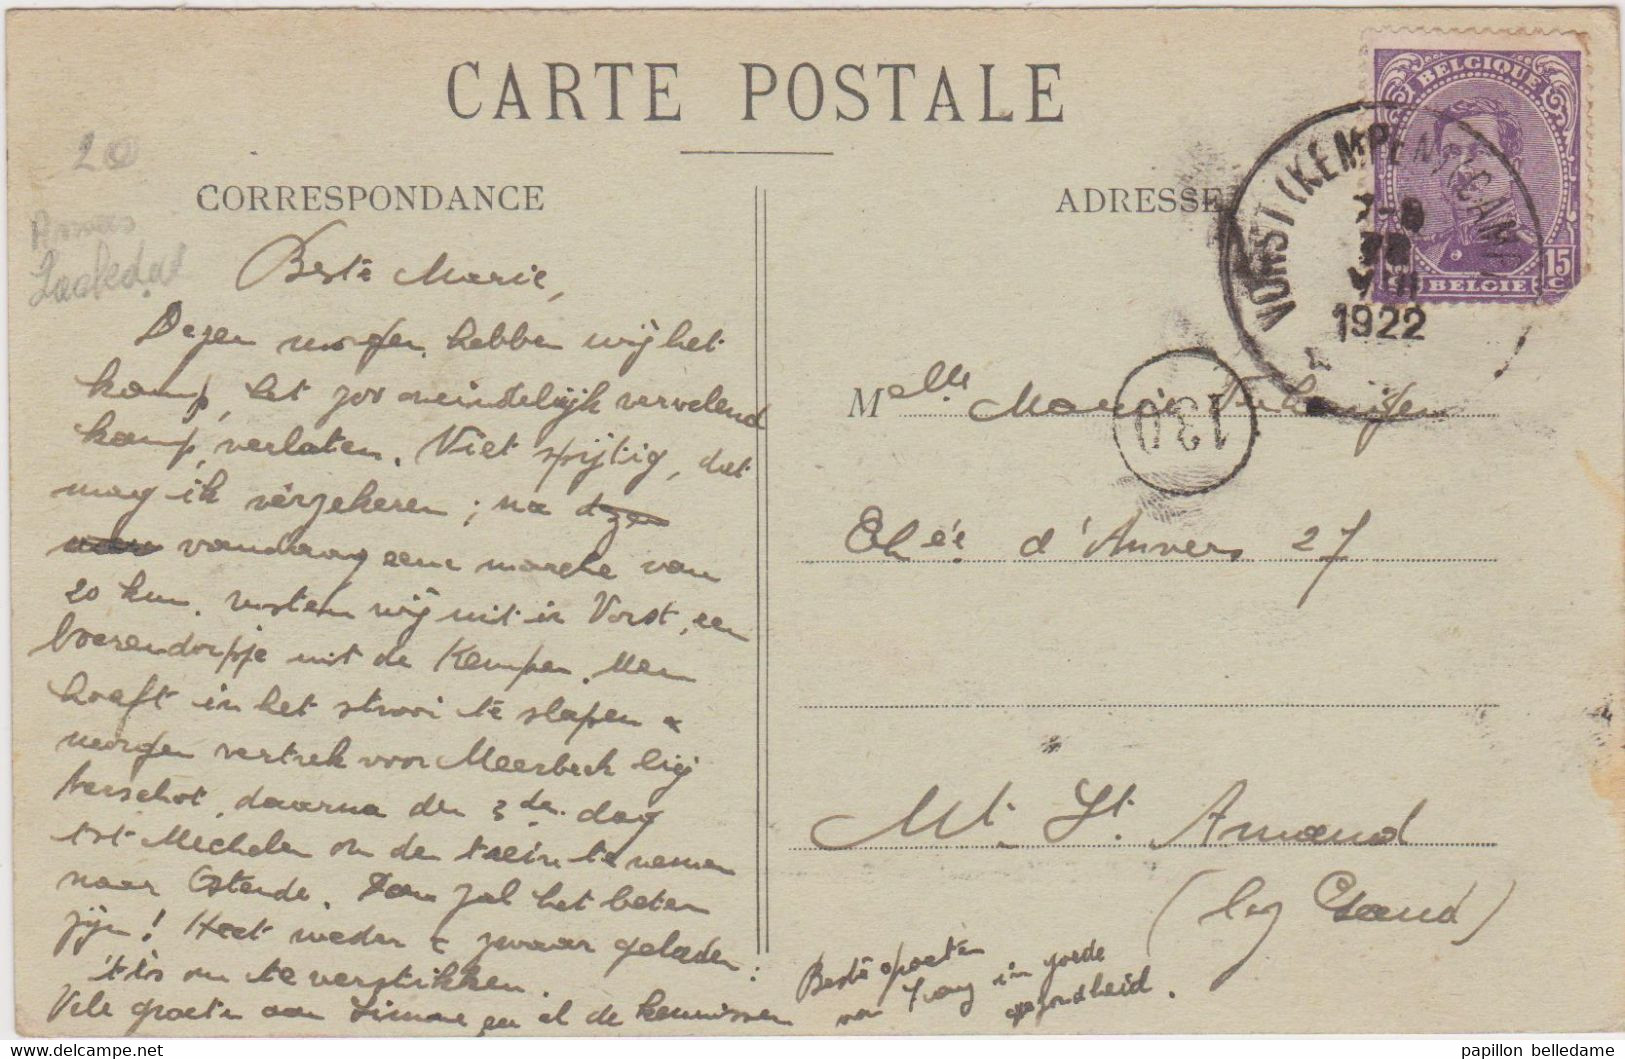 CARTE POSTALE
CORRESPONDANCE
ADRESSE
20
BELGIQUE
15 C
BELGIE
VORST (KEMPEN) (CAMP
1922
130
Beste Marie,
Dezen morgen hebben wij het
kamp, het zoo oneindelijk vervelend
kamp, verlaten. Niet spijtig, dat
mag ik verzekeren; na dezen
vandaag eene marche van
20 km. rusten wij uit in Vorst, een
boerendorpje uit de Kempen. Men
hoeft in het strooi te slapen &
morgen vertrek voor Meerbeek bij
Aerschot, daarna den 3den dag
tot Mechelen om den trein te nemen
naar Ostende. Dan zal het beter
zijn! Heet weder & zwaar geladen:
't is om te verstikken.
Vele groeten aan Simone en al de kennissen
Beste groeten
van in goede
gezondheid.
Melle Marie
Chée d'Anvers 27
Mt. St. Amand
(bij Gand)
papillon belledame